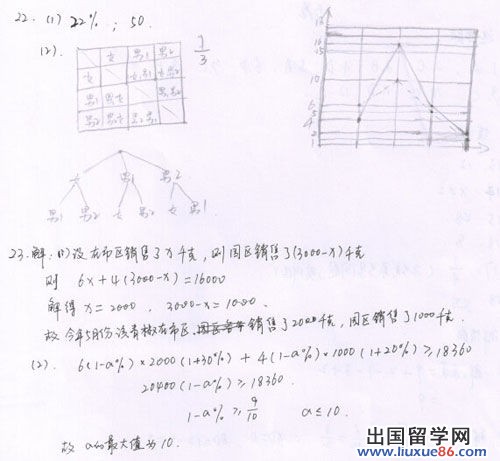 22. (1) 22% ; 50.
(2).
女 男1 男2
女 女男1 女男2
男1 男1女
男2 男2女 男2男1
1/3
16
15
10
6
5
4
2
1
女 男1 男2
男1 男2 女 男2 女 男1
23. 解: (1) 设在市区销售了x千克, 则园区销售了(3000-x)千克
则 6x+4(3000-x)=16000
解得 x=2000 , 3000-x=1000.
故 今年5月份该青椒在市区销售了2000千克, 园区销售了1000千克.
(2). 6(1-a%)×2000(1+30%) + 4(1-a%)×1000(1+20%) ≥ 18360
20400(1-a%) ≥ 18360.
1-a% ≥ 9/10 a ≤ 10.
故 a的最大值为10.
出国留学网
www.liuxue86.com